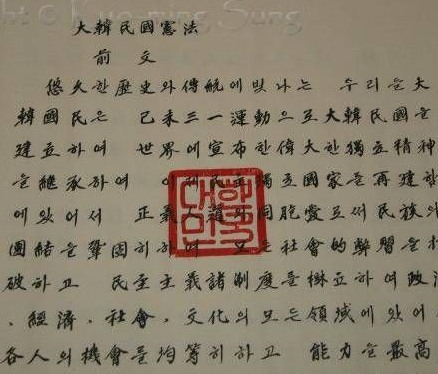 ht © Kuo-ming Sung
大韓民國憲法
前文
悠久한 歷史와 傳統에 빛나는 우리들 大
韓國民은 己未三一運動으로 大韓民國을
建立하여 世界에 宣布한 偉大한 獨立精神
을 繼承하여 이제 民主獨立國家를 再建함
에 있어서 正義人道와 同胞愛로써 民族의
團結을 鞏固히하며 모든 社會的 弊習을 打
破하고 民主主義諸制度를 樹立하여 政治
、經濟、社會、文化의 모든 領域에 있어서
各人의 機會를 均等히하고 能力을 最高
대한
민국